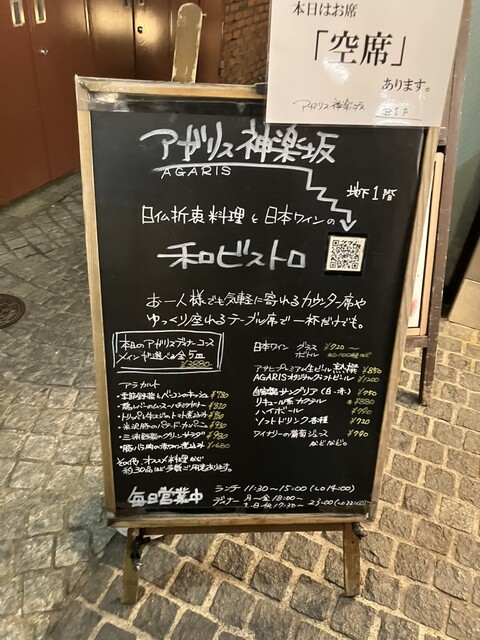 本日はお席
「空席」
あります。
アガリス神楽坂 B1F
アガリス神楽坂
AGARIS
地下1階
日仏折衷料理と日本ワインの
和ビストロ
お一人様でも気軽に寄れるカウンター席や
ゆっくり座れるテーブル席で一杯だけでも。
本日のアガリスディナーコース
メインが選べる全5皿
¥3880-
アラカルト
その他、オススメ料理など
約30品ほど多数ご用意あります。
日本ワイン グラス ¥720~
ボトル
アサヒプレミアム生ビール熟撰 ¥850
AGARISオリジナルクラフトビール ¥1200
自家製サングリア(白・赤) ¥950
リキュール系カクテル ¥880
ハイボール ¥790
ソフトドリンク各種 ¥720
ワイナリーの葡萄ジュース ¥790
などなど。
毎日営業中
ランチ 11:30~15:00 (LO 14:00)
ディナー 月~金 18:00~
土・日・祝 17:30~
23:00